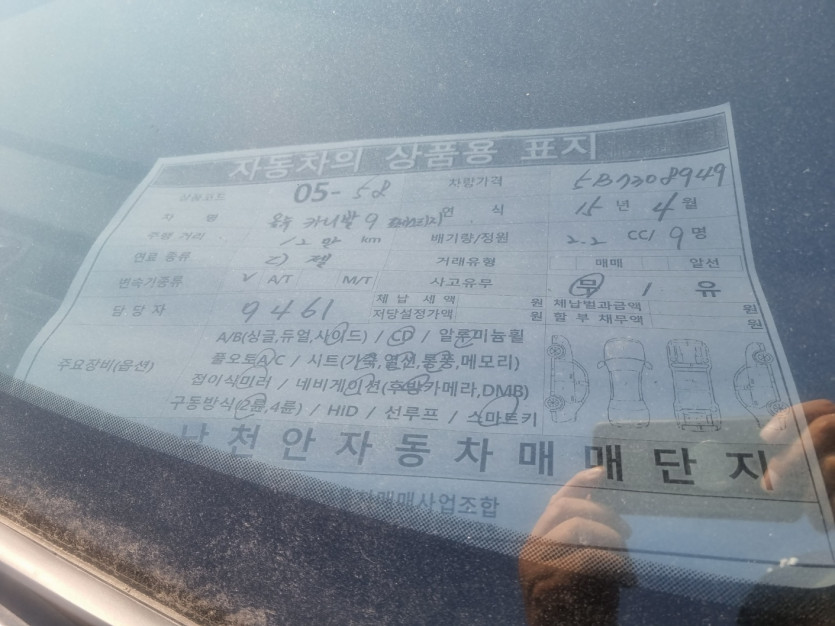 자동차의 상품용 표지
상품코드 05-58 차량가격 5B7308949
차 명 카니발 9 연 식 15 년 4 월
주행 거리 12만 km 배기량/정원 2.2 CC/ 9 명
연료 종류 디젤 거래유형 매매 알선
변속기종류 V A/T M/T 사고유무 무 / 유
담 당 자 9461 체 납 세 액 원 체납범과금액 원
저당설정가액 원 할 부 채무액 원
주요장비(옵션) A/B(싱글,듀얼,사이드) / CD / 알루미늄휠
풀오토A/C / 시트(가죽,열선,통풍,메모리)
접이식미러 / 네비게이션(후방카메라,DMB)
구동방식(2륜,4륜) / HID / 선루프 / 스마트키
남천안자동차매매단지
자동차매매사업조합